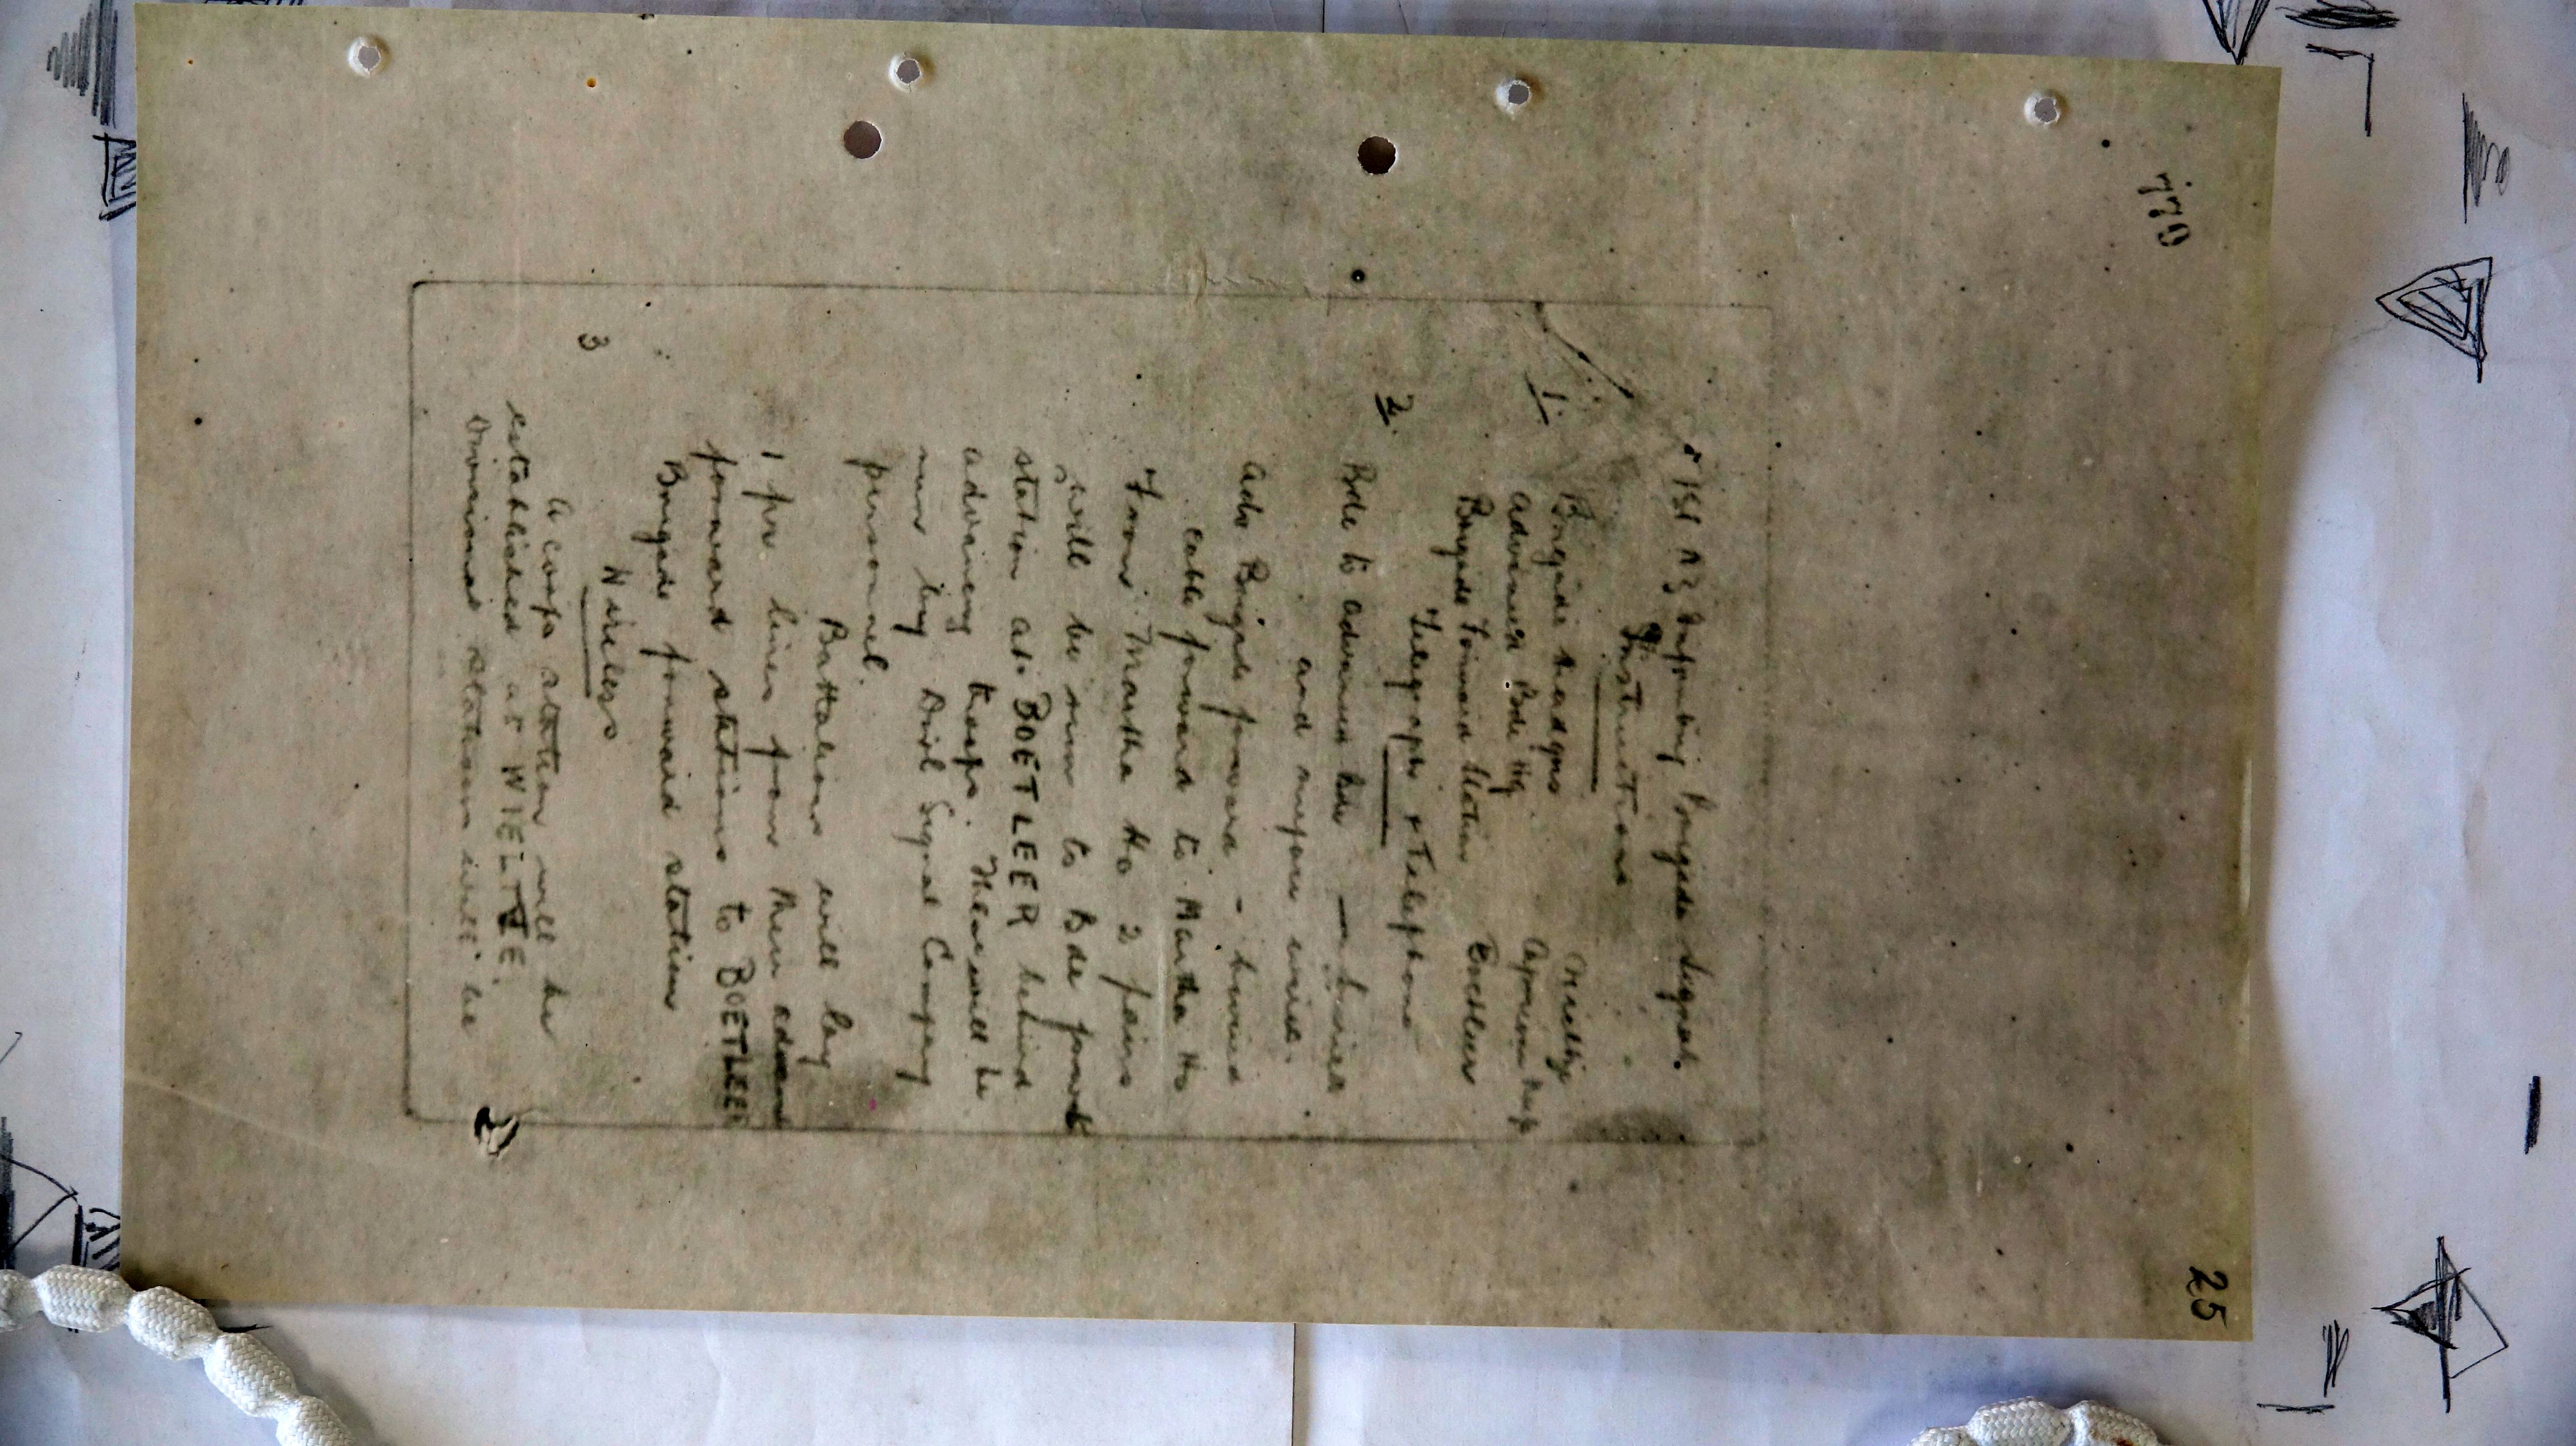 779
25
1st NZ Infantry Brigade Signal
Instructions
1.
Brigade Headqrs Wieltje
Advanced Bde Hq
Brigade Forward Station Boetleer
Telegraph & Telephone
2.
Bde to advanced Bde — buried
and airline
Adv Brigade forward - buried
cable forward to Martha Ho
From Martha Ho 2 pairs
will be run to Bde forwd
station at BOETLEER behind
advancing troops. These will be
run by Divl Signal Company
personnel.
Battalions will lay
1 pr lines from their advand
forward stations to BOETLEER
Brigade forward station
Wireless
3
A corps station will be
established at WIELTJE.
Divisional station will be